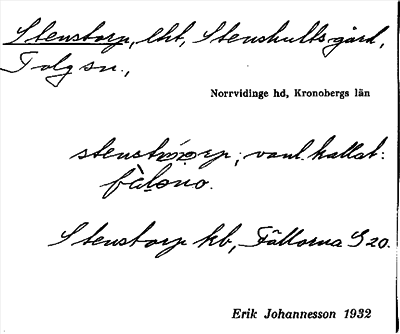 Stenstorp, lht, Stenshults gård,
Tolg sn.,
Norrvidinge hd, Kronobergs län
stenstòrp; vanl. kallat:
fàlona.
Stenstorp kb, Fällorna G 20.
Erik Johannesson 1932